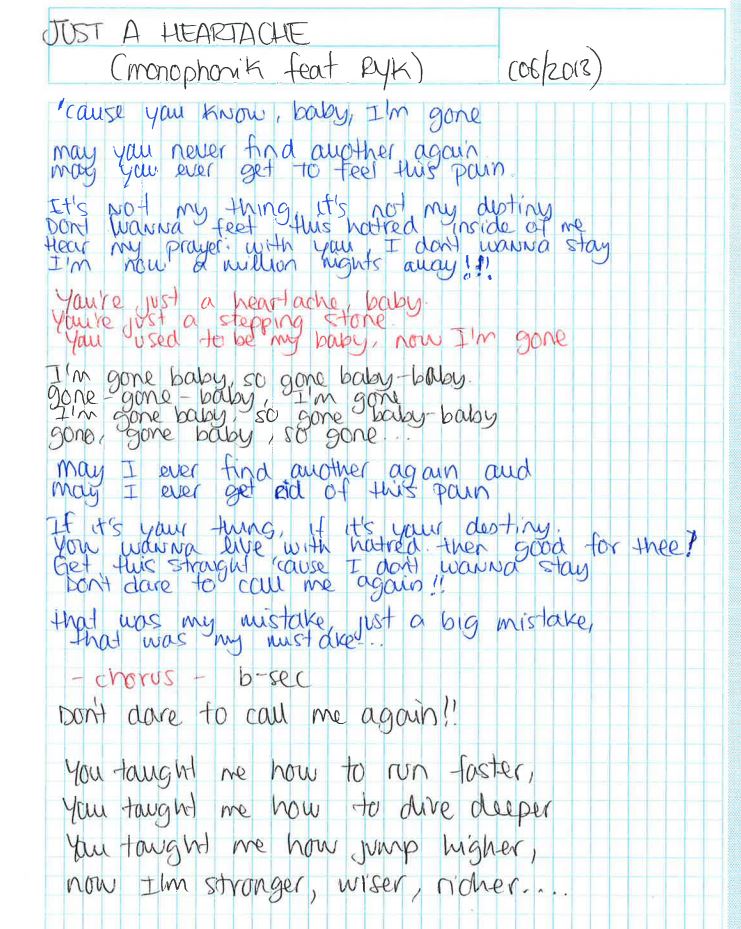 JUST A HEARTACHE
(monophonik feat RyK) (06/2013)
'cause you know, baby, I'm gone
may you never find another again
may you ever get to feel this pain.
It's not my thing, it's not my destiny
Don't wanna feel this hatred inside of me
Hear my prayer: with you, I don't wanna stay
I'm now a million nights away!!!
You're just a heartache, baby.
You're just a stepping stone.
You used to be my baby, now I'm gone
I'm gone baby, so gone baby-baby.
gone-gone-baby, I'm gone
I'm gone baby, so gone baby-baby
gone, gone baby, so gone...
may I ever find another again and
may I ever get rid of this pain
If it's your thing, if it's your destiny.
You wanna live with hatred. then good for thee!
Get this straight 'cause I don't wanna stay
Don't dare to call me again!!
that was my mistake, just a big mistake,
that was my mistake...
- chorus - b-sec
Don't dare to call me again!!
You taught me how to run faster,
You taught me how to dive deeper
You taught me how jump higher,
now I'm stronger, wiser, richer....